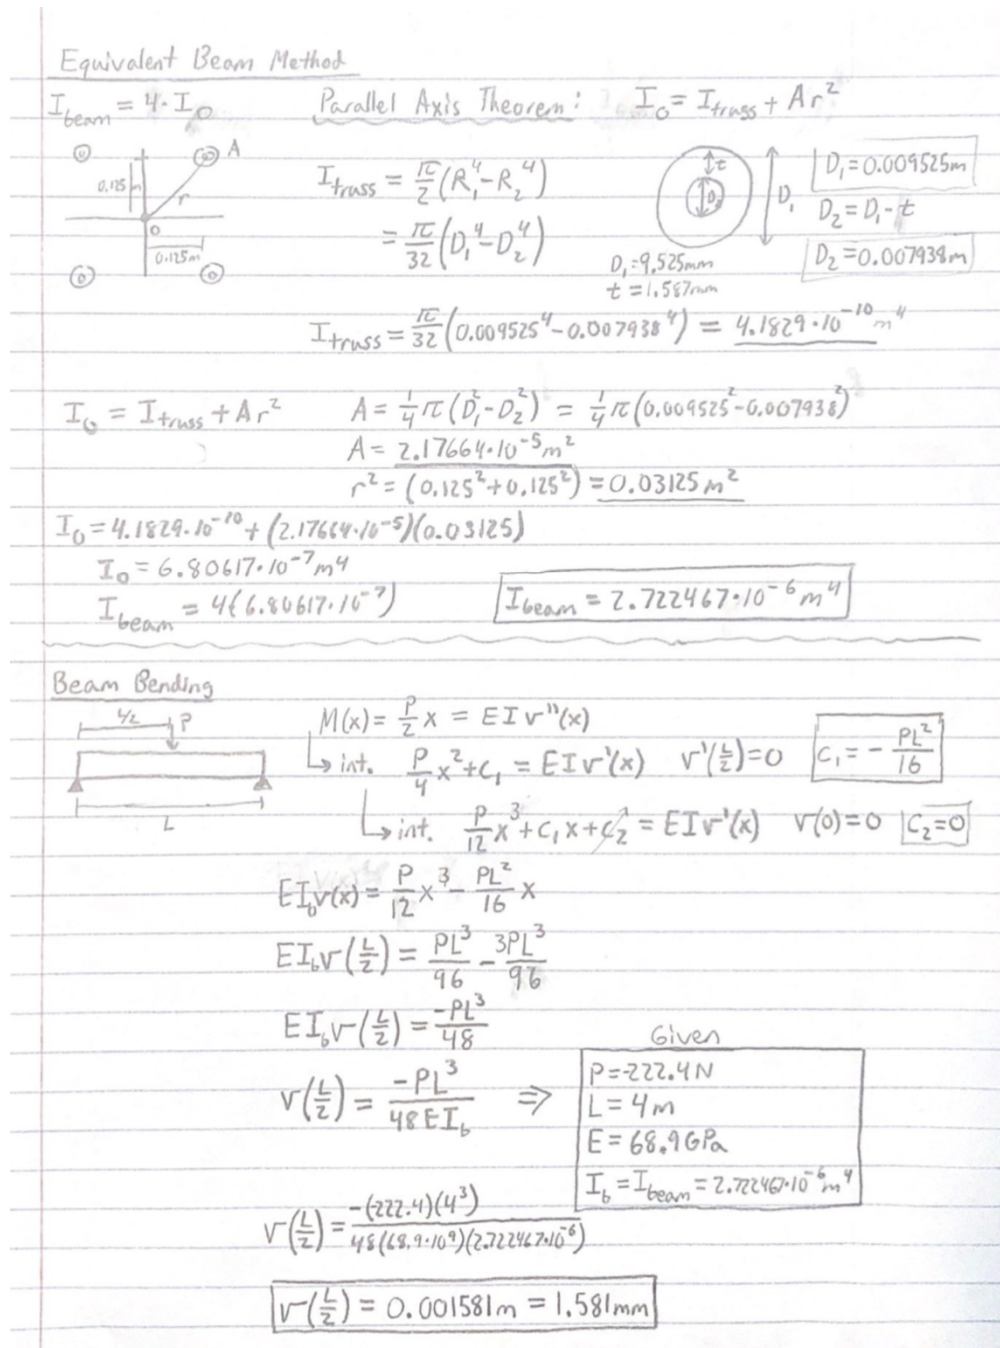 Equivalent Beam Method
I_beam = 4·I_O Parallel Axis Theorem: I_O = I_truss + Ar²
A
0.125m
r
O
0.125m
I_truss = π/2 (R₁⁴-R₂⁴)
= π/32 (D₁⁴-D₂⁴)
t
D₂
D₁
D₁=9.525mm
t=1.587mm
D₁=0.009525m
D₂=D₁-t
D₂=0.007938m
I_truss = π/32 (0.009525⁴-0.007938⁴) = 4.1829·10⁻¹⁰ m⁴
I_O = I_truss + Ar² A = 1/4 π(D₁²-D₂²) = 1/4 π(0.009525²-0.007938²)
A = 2.17664·10⁻⁵ m²
r² = (0.125²+0.125²) = 0.03125 m²
I_O = 4.1829·10⁻¹⁰ + (2.17664·10⁻⁵)(0.03125)
I_O = 6.80617·10⁻⁷ m⁴
I_beam = 4(6.80617·10⁻⁷) I_beam = 2.722467·10⁻⁶ m⁴
Beam Bending
L/2 P
L
M(x) = P/2 x = EIv''(x)
int. P/4 x²+C₁ = EIv'(x) v'(L/2)=0 C₁ = - PL²/16
int. P/12 x³+C₁x+C₂ = EIv'(x) v(0)=0 C₂=0
EI_b v(x) = P/12 x³ - PL²/16 x
EI_b v(L/2) = PL³/96 - 3PL³/96
EI_b v(L/2) = -PL³/48
Given
v(L/2) = -PL³/48EI_b ⇒
P=-222.4N
L=4m
E=68.9GPa
I_b=I_beam=2.722467·10⁻⁶ m⁴
v(L/2) = -(-222.4)(4³)/48(68.9·10⁹)(2.722467·10⁻⁶)
v(L/2) = 0.001581m = 1.581mm